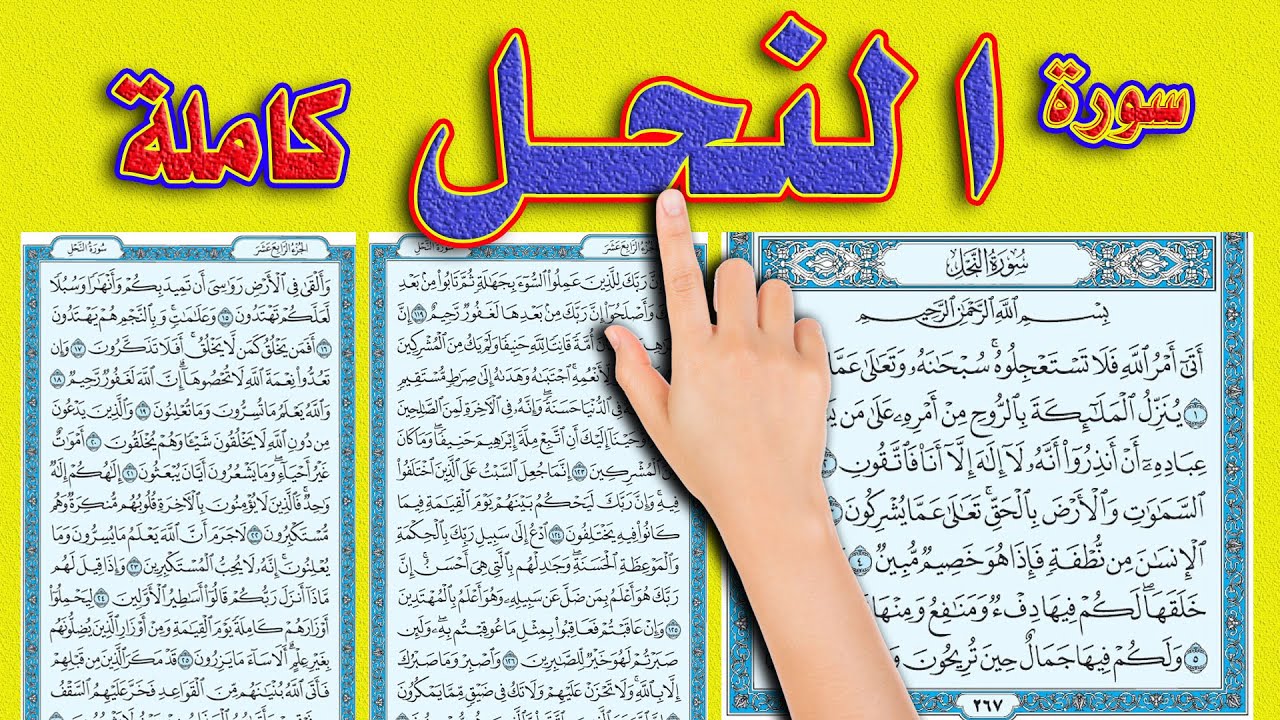 سورة النحل كاملة
سُورَةُ النَّحْلِ
بِسْمِ اللَّهِ الرَّحْمَٰنِ الرَّحِيمِ
أَتَىٰٓ أَمْرُ ٱللَّهِ فَلَا تَسْتَعْجِلُوهُ ۚ سُبْحَٰنَهُۥ وَتَعَٰلَىٰ عَمَّا
١ يُنَزِّلُ ٱلْمَلَٰٓئِكَةَ بِٱلرُّوحِ مِنْ أَمْرِهِۦ عَلَىٰ مَن
عِبَادِهِۦٓ أَنْ أَنذِرُوٓا۟ أَنَّهُۥ لَآ إِلَٰهَ إِلَّآ أَنَا۠ فَٱتَّقُونِ
ٱلسَّمَٰوَٰتِ وَٱلْأَرْضَ بِٱلْحَقِّ ۚ تَعَٰلَىٰ عَمَّا يُشْرِكُونَ
ٱلْإِنسَٰنَ مِن نُّطْفَةٍ فَإِذَا هُوَ خَصِيمٌ مُّبِينٌ ٤
خَلَقَهَا ۗ لَكُمْ فِيهَا دِفْءٌ وَمَنَٰفِعُ وَمِنْهَا
٥ وَلَكُمْ فِيهَا جَمَالٌ حِينَ تُرِيحُونَ
٢٦٧
الجُزْءُ الرَّابِعَ عَشَرَ سُورَةُ النَّحْلِ
رَبَّكَ لِلَّذِينَ عَمِلُوا۟ ٱلسُّوٓءَ بِجَهَٰلَةٍ ثُمَّ تَابُوا۟ مِنۢ بَعْدِ
وَأَصْلَحُوٓا۟ إِنَّ رَبَّكَ مِنۢ بَعْدِهَا لَغَفُورٌ رَّحِيمٌ ١١٩ إِنَّ
أُمَّةً قَانِتًا لِّلَّهِ حَنِيفًا وَلَمْ يَكُ مِنَ ٱلْمُشْرِكِينَ
لِّأَنْعُمِهِ ۚ ٱجْتَبَىٰهُ وَهَدَىٰهُ إِلَىٰ صِرَٰطٍ مُّسْتَقِيمٍ
فِى ٱلدُّنْيَا حَسَنَةً ۖ وَإِنَّهُۥ فِى ٱلْءَاخِرَةِ لَمِنَ ٱلصَّٰلِحِينَ
إِلَيْكَ أَنِ ٱتَّبِعْ مِلَّةَ إِبْرَٰهِيمَ حَنِيفًا ۖ وَمَا كَانَ
ٱلْمُشْرِكِينَ ١٢٣ إِنَّمَا جُعِلَ ٱلسَّبْتُ عَلَى ٱلَّذِينَ ٱخْتَلَفُوا۟
فِيهِ ۚ وَإِنَّ رَبَّكَ لَيَحْكُمُ بَيْنَهُمْ يَوْمَ ٱلْقِيَٰمَةِ فِيمَا
كَانُوا۟ فِيهِ يَخْتَلِفُونَ ١٢٤ ٱدْعُ إِلَىٰ سَبِيلِ رَبِّكَ بِٱلْحِكْمَةِ
وَٱلْمَوْعِظَةِ ٱلْحَسَنَةِ ۖ وَجَٰدِلْهُم بِٱلَّتِى هِىَ أَحْسَنُ ۚ إِنَّ
رَبَّكَ هُوَ أَعْلَمُ بِمَن ضَلَّ عَن سَبِيلِهِۦ ۖ وَهُوَ أَعْلَمُ بِٱلْمُهْتَدِينَ
١٢٥ وَإِنْ عَاقَبْتُمْ فَعَاقِبُوا۟ بِمِثْلِ مَا عُوقِبْتُم بِهِۦ ۖ وَلَئِن
صَبَرْتُمْ لَهُوَ خَيْرٌ لِّلصَّٰبِرِينَ ١٢٦ وَٱصْبِرْ وَمَا صَبْرُكَ
إِلَّا بِٱللَّهِ ۚ وَلَا تَحْزَنْ عَلَيْهِمْ وَلَا تَكُ فِى ضَيْقٍ مِّمَّا يَمْكُرُونَ
الجُزْءُ الرَّابِعَ عَشَرَ سُورَةُ النَّحْلِ
وَأَلْقَىٰ فِى ٱلْأَرْضِ رَوَٰسِىَ أَن تَمِيدَ بِكُمْ وَأَنْهَٰرًا وَسُبُلًا
لَّعَلَّكُمْ تَهْتَدُونَ ١٥ وَعَلَٰمَٰتٍ ۚ وَبِٱلنَّجْمِ هُمْ يَهْتَدُونَ
١٦ أَفَمَن يَخْلُقُ كَمَن لَّا يَخْلُقُ ۗ أَفَلَا تَذَكَّرُونَ ١٧ وَإِن
تَعُدُّوا۟ نِعْمَةَ ٱللَّهِ لَا تُحْصُوهَآ ۗ إِنَّ ٱللَّهَ لَغَفُورٌ رَّحِيمٌ ١٨
وَٱللَّهُ يَعْلَمُ مَا تُسِرُّونَ وَمَا تُعْلِنُونَ ١٩ وَٱلَّذِينَ يَدْعُونَ
مِن دُونِ ٱللَّهِ لَا يَخْلُقُونَ شَيْـًٔا وَهُمْ يُخْلَقُونَ ٢٠ أَمْوَٰتٌ
غَيْرُ أَحْيَآءٍ ۖ وَمَا يَشْعُرُونَ أَيَّانَ يُبْعَثُونَ ٢١ إِلَٰهُكُمْ إِلَٰهٌ
وَٰحِدٌ ۚ فَٱلَّذِينَ لَا يُؤْمِنُونَ بِٱلْءَاخِرَةِ قُلُوبُهُم مُّنكِرَةٌ وَهُم
مُّسْتَكْبِرُونَ ٢٢ لَا جَرَمَ أَنَّ ٱللَّهَ يَعْلَمُ مَا يُسِرُّونَ وَمَا
يُعْلِنُونَ ۚ إِنَّهُۥ لَا يُحِبُّ ٱلْمُسْتَكْبِرِينَ ٢٣ وَإِذَا قِيلَ لَهُم
مَّاذَآ أَنزَلَ رَبُّكُمْ ۙ قَالُوٓا۟ أَسَٰطِيرُ ٱلْأَوَّلِينَ ٢٤ لِيَحْمِلُوٓا۟
أَوْزَارَهُمْ كَامِلَةً يَوْمَ ٱلْقِيَٰمَةِ ۙ وَمِنْ أَوْزَارِ ٱلَّذِينَ يُضِلُّونَهُم
بِغَيْرِ عِلْمٍ ۗ أَلَا سَآءَ مَا يَزِرُونَ ٢٥ قَدْ مَكَرَ ٱلَّذِينَ مِن قَبْلِهِمْ
فَأَتَى ٱللَّهُ بُنْيَٰنَهُم مِّنَ ٱلْقَوَاعِدِ فَخَرَّ عَلَيْهِمُ ٱلسَّقْفُ